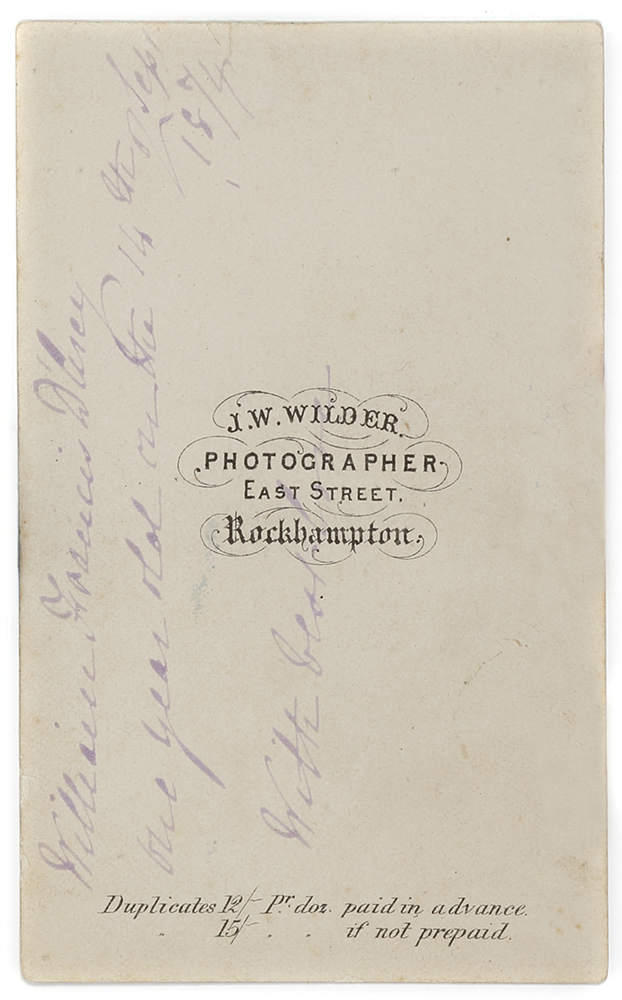 J. W. WILDER.
PHOTOGRAPHER
EAST STREET.
Rockhampton.
William Francis D'Arcy
one year old on the 14th of Sep
1874
With best
Duplicates 12/- Pr. doz. paid in advance.
" 15/- " " if not prepaid.